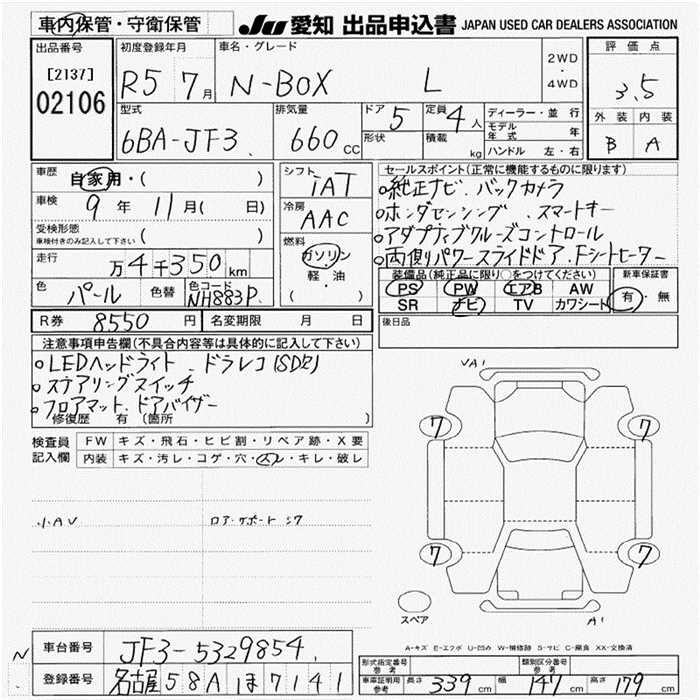 車内保管・守衛保管
JU 愛知 出品申込書 JAPAN USED CAR DEALERS ASSOCIATION
出品番号
[2137]
02106
初度登録年月
R5 7月
車名・グレード
N-BOX L
2WD
・
4WD
評価点
3.5
外装 内装
B A
型式
6BA-JF3
排気量
660 cc
ドア 5
形状
定員 4人
積載 kg
ディーラー・並行
モデル年式 年
ハンドル 左・右
車歴 自家用・( )
車検 9年 11月( 日)
受検形態
車検付きのみ記入して下さい ( )
走行 万4千350km
色 パール 色替 色コード NH883P
シフト IAT
冷房 AAC
燃料
ガソリン
軽・油
( )
セールスポイント(正常に機能するものに限ります)
○純正ナビ.バックカメラ
○ホンダセンシング.スマートキー
○アダプティブクルーズコントロール
○両側パワースライドドア.Fシートヒーター
装備品(純正品に限り○をつけてください)
PS PW エアB AW
SR ナビ TV カワシート
新車保証書
有・無
R券 8550円 名変期限 月 日
後日品
注意事項申告欄(不具合内容等は具体的に記入して下さい)
○LEDヘッドライト.ドラレコ(SD欠)
○ステアリングスイッチ
○フロアマット.ドアバイザー
修復歴 有 (箇所 )
検査員記入欄
FW キズ・飛石・ヒビ割・リペア跡・X要
内装 キズ・汚レ・コゲ・穴・スレ・キレ・破レ
小AU
ロア・サポート シワ
VA1
7 7
7 7
スペア
A1
A-キズ E-エクボ U-凹み W-補修跡 S-サビ C-腐食 XX-交換済
N
車台番号 JF3-5329854
登録番号 名古屋 58A ほ 7141
形式指定番号 参考
類別区分番号 参考
車庫証明用 参考 長さ 339cm 幅 147cm 高さ 179cm